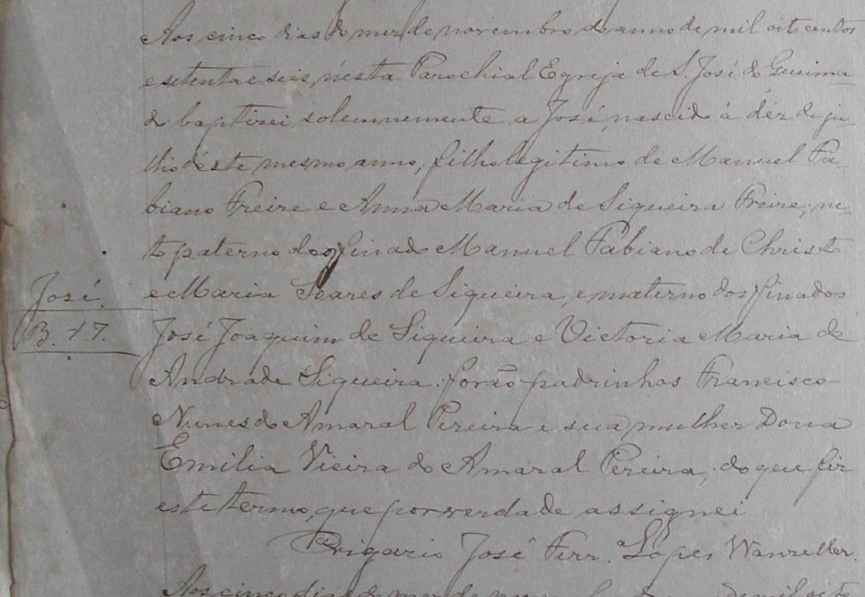 Aos cinco dias do mez de novembro do anno de mil oito centos
e setenta e seis, n'esta Parochial Egreja de S. José do Queima-
do baptizei solemnemente a José, nascido á déz de ju-
lho deste mesmo anno, filho legitimo de Manuel Fa-
biano Freire e Anna Maria de Siqueira Freire; ne-
to paterno do finado Manuel Fabiano de Christo
e Maria Soares de Siqueira, e materno dos finados
José Joaquim de Siqueira e Victoria Maria de
Andrade Siqueira: forão padrinhos Francisco
Nunes do Amaral Pereira e sua mulher Dona
Emilia Vieira do Amaral Pereira; do que fiz
este termo, que por verdade assignei
José Ferr.ª Lopes
José.
B. 17.
Aos cinco dias do mez de